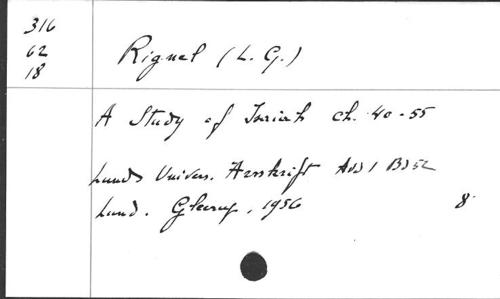 316
62
18
Rignel (L. G.)
A Study of Isaiah ch. 40-55
Lunds Univers. Arsskrift Avd 1 Bd 52
Lund. Gleerup, 1956 8